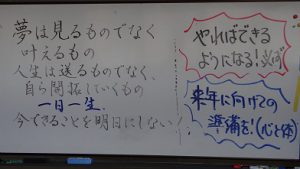 夢は見るものでなく
叶えるもの
人生は送るものでなく、
自ら開拓していくもの
一日一生.
今できることを明日にしない!
やればできる
ようになる!必ず
来年に向けての
準備を!(心と体)